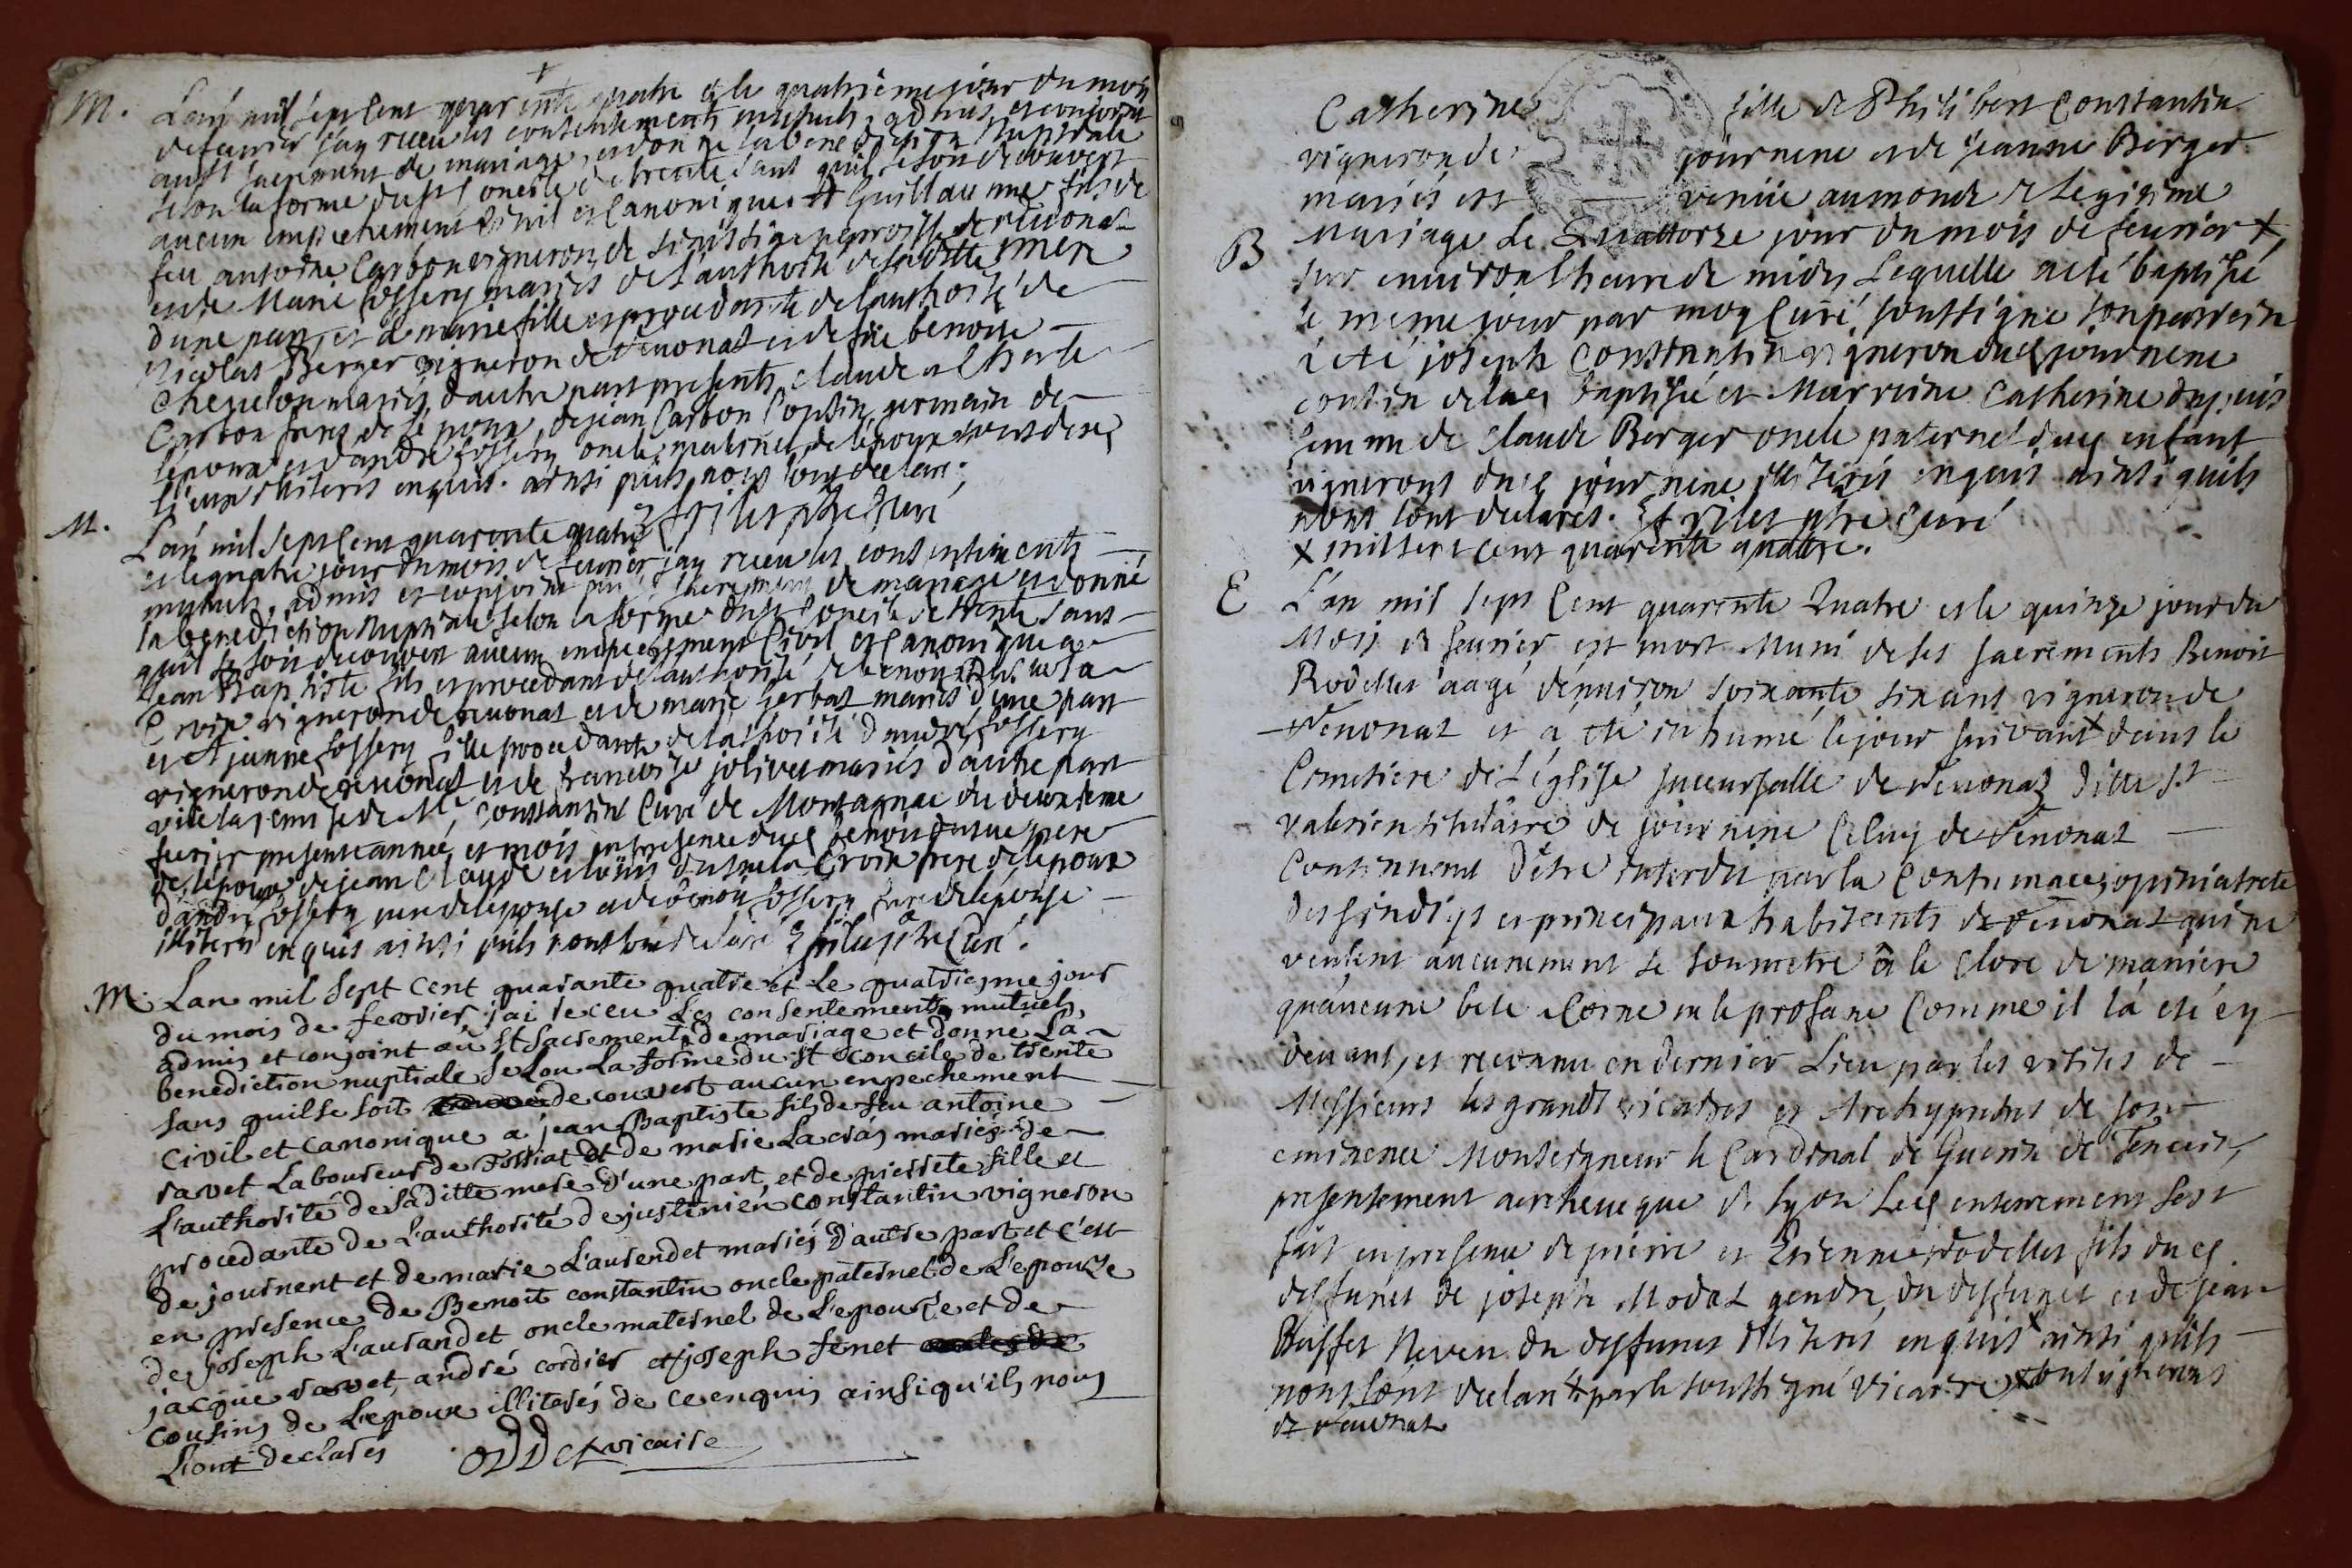 M. L'an mil sept Cent quarente quatre et le quatrieme jour du mois
de feurier j'ay receu les consentements mutuels, admis et conjoint
au st sacrement de mariage, et donné la benediction Nuptiale
selon la forme du st Concile de trente sans quil se soit decouvert
aucun empechement Civil et Canonique a Guillaume fils de
feu antoine Carbon vigneron de
et de Marie fossery mariés de l'authorité de sa ditte mere
d'une part, et a marie fille et procedante de l'authorité de
Nicolas Berger vigneron de Revonas et de feüe benoite
Chepelon mariés, d'autre part presents, claude
Carbon frere de l'epoux, de jean Carbon Coussin germain de
l'epoux et d'andré fossery oncle maternel de l'epoux
illiteris enquis. ainsi quils nous l'ont declaré,
ptre Curé
M. L'an mil sept Cent quarente quatre
et le quatre jour du mois de feurier jay receu les consentements
mutuels, admis et conjoint au st sacrement de mariage et donné
la benediction Nuptiale selon la forme du st Concile de trente sans
quil se soit decouvert aucun empechement Civil et Canonique a
Jean Baptiste fils et procedant de l'authorité de benoit
Croix vigneron de revonas et de marie Gerbas mariés d'une part
et A jeanne fossery fille procedante de l'authorité d'andré fossery
vigneron de revonas et de francoise jolivet mariés d'autre part
de Mr. Constantin Curé de Montagnac du deuxieme
feurier presente année et mois en presence du benoit pere
de l'epoux de jean Claude et la Croix frere de l'epoux
d'andré fossery pere de l'epouse et de benoit fossery frere de l'epouse
illiteris enquis ainsi quils nous l'ont declaré ptre Curé.
M. Lan mil sept cent quarante quatre et le quatriesme jour
du mois de fevrier j'ai receu les consentements mutuels,
admis et conjoint au st sacrement de mariage et donne la
benediction nuptiale selon la forme du st concile de trente
sans quil se soit decouvert aucun enpechement
civil et canonique a jean Baptiste fils de feu antoine
ravet laboureur de Tossiat et de marie Lacras mariés de
l'authorité de sa ditte mere d'une part, et de pierrete fille et
procedante de l'authorité de justinien constantin vigneron
de journent et de marie L'aurendet mariés d'autre part et c'est
en presence de Benoit constantin oncle paternel de L'epouze
de joseph L'aurandet oncle maternel de L'epouse et de
jacque ravet, andré cordier et joseph fenet
cousins de L'epoux illiterés de ce enquis ainsi qu'ils nous
L'ont declarés oDDet vicaire
Catherine fille de Philibert Constantin
vigneron de journene et de jeanne Berger
mariés est venüe au monde et legitime
B mariage Le Quattorze jour du mois de feurier X
sur environ lheure de midy Lequelle a eté baptisé
le meme jour par moy Curé soussigné son parrein
a eté joseph Constantin vigneron dud journene
coutin de lad baptisé et Marreine Catherine dupuis
femme de Claude Berger oncle paternel dud enfant
vignerons dud journene illiteris enquis ainsi quils
nous l'ont declarés. ptre Curé
X mil sept cent quarente quattre.
E L'an mil sept Cent quarente Quatre et le quinze jour du
Mois de feurier est mort Muni de ses sacrements Benoit
Rodellet aagé d'environ soixante six ans vigneron de
Revonas et a eté inhumé le jour suivant X dans le
Cimetiere de l'église succursalle de Revonas ditte st
valerien titulaire de journene Celuy de Revonas
Continuant d'être interdit par la Contumace, opiniatreté
des sindigs et principaux habiteants de Revonas qui ne
veulent aucunement se soumetre à le Clore de maniere
qu'aucune bete a Corne ne le profane Comme il l'a eté cy
devant, et reconnu en dernier Lieu par les visites de
Messieurs les grands vicaires et Archyprêtres de son
eminence Monseigneur le Cardinal de Guerin de Tencin,
presentement archeveque de Lyon Led enterrement s'est
fait en presence de pierre et Etienne Rodellet fils dud
deffunct de joseph Modas gendre du deffunct et de jean
Buffet Neveu du deffunct illiteris enquis X ainsi quils
nous l'ont declaré X par le soussigné vicaire X tous vignerons
de Revonas